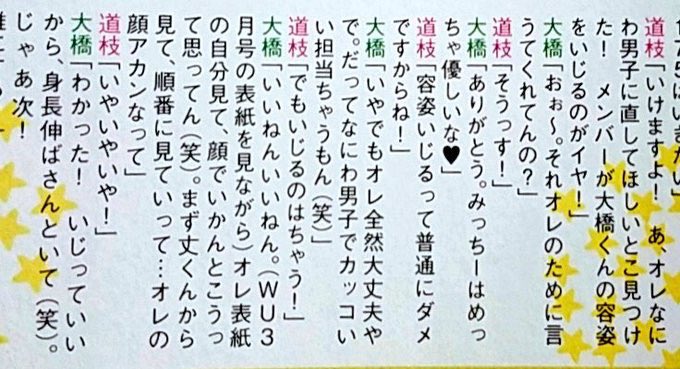 175はいきたい」
道枝「いけますよ! あ、オレなに
わ男子に直してほしいとこ見つけ
た! メンバーが大橋くんの容姿
をいじるのがイヤ!」
大橋「おぉ〜。それオレのために言
うてくれてんの?」
道枝「そうっす!」
大橋「ありがとう。みっちーはめっ
ちゃ優しいな♥」
道枝「容姿いじるって普通にダメ
ですからね!」
大橋「いやでもオレ全然大丈夫や
で。だってなにわ男子でカッコい
い担当ちゃうもん(笑)」
道枝「でもいじるのはちゃう!」
大橋「いいねんいいねん。(WU3
月号の表紙を見ながら)オレ表紙
の自分見て、顔でいかんとこうっ
て思ってん(笑)。まず丈くんから
見て、順番に見ていって…オレの
顔アカンなって」
道枝「いやいやいや!」
大橋「わかった! いじっていい
から、身長伸ばさんといて(笑)。
じゃあ次!